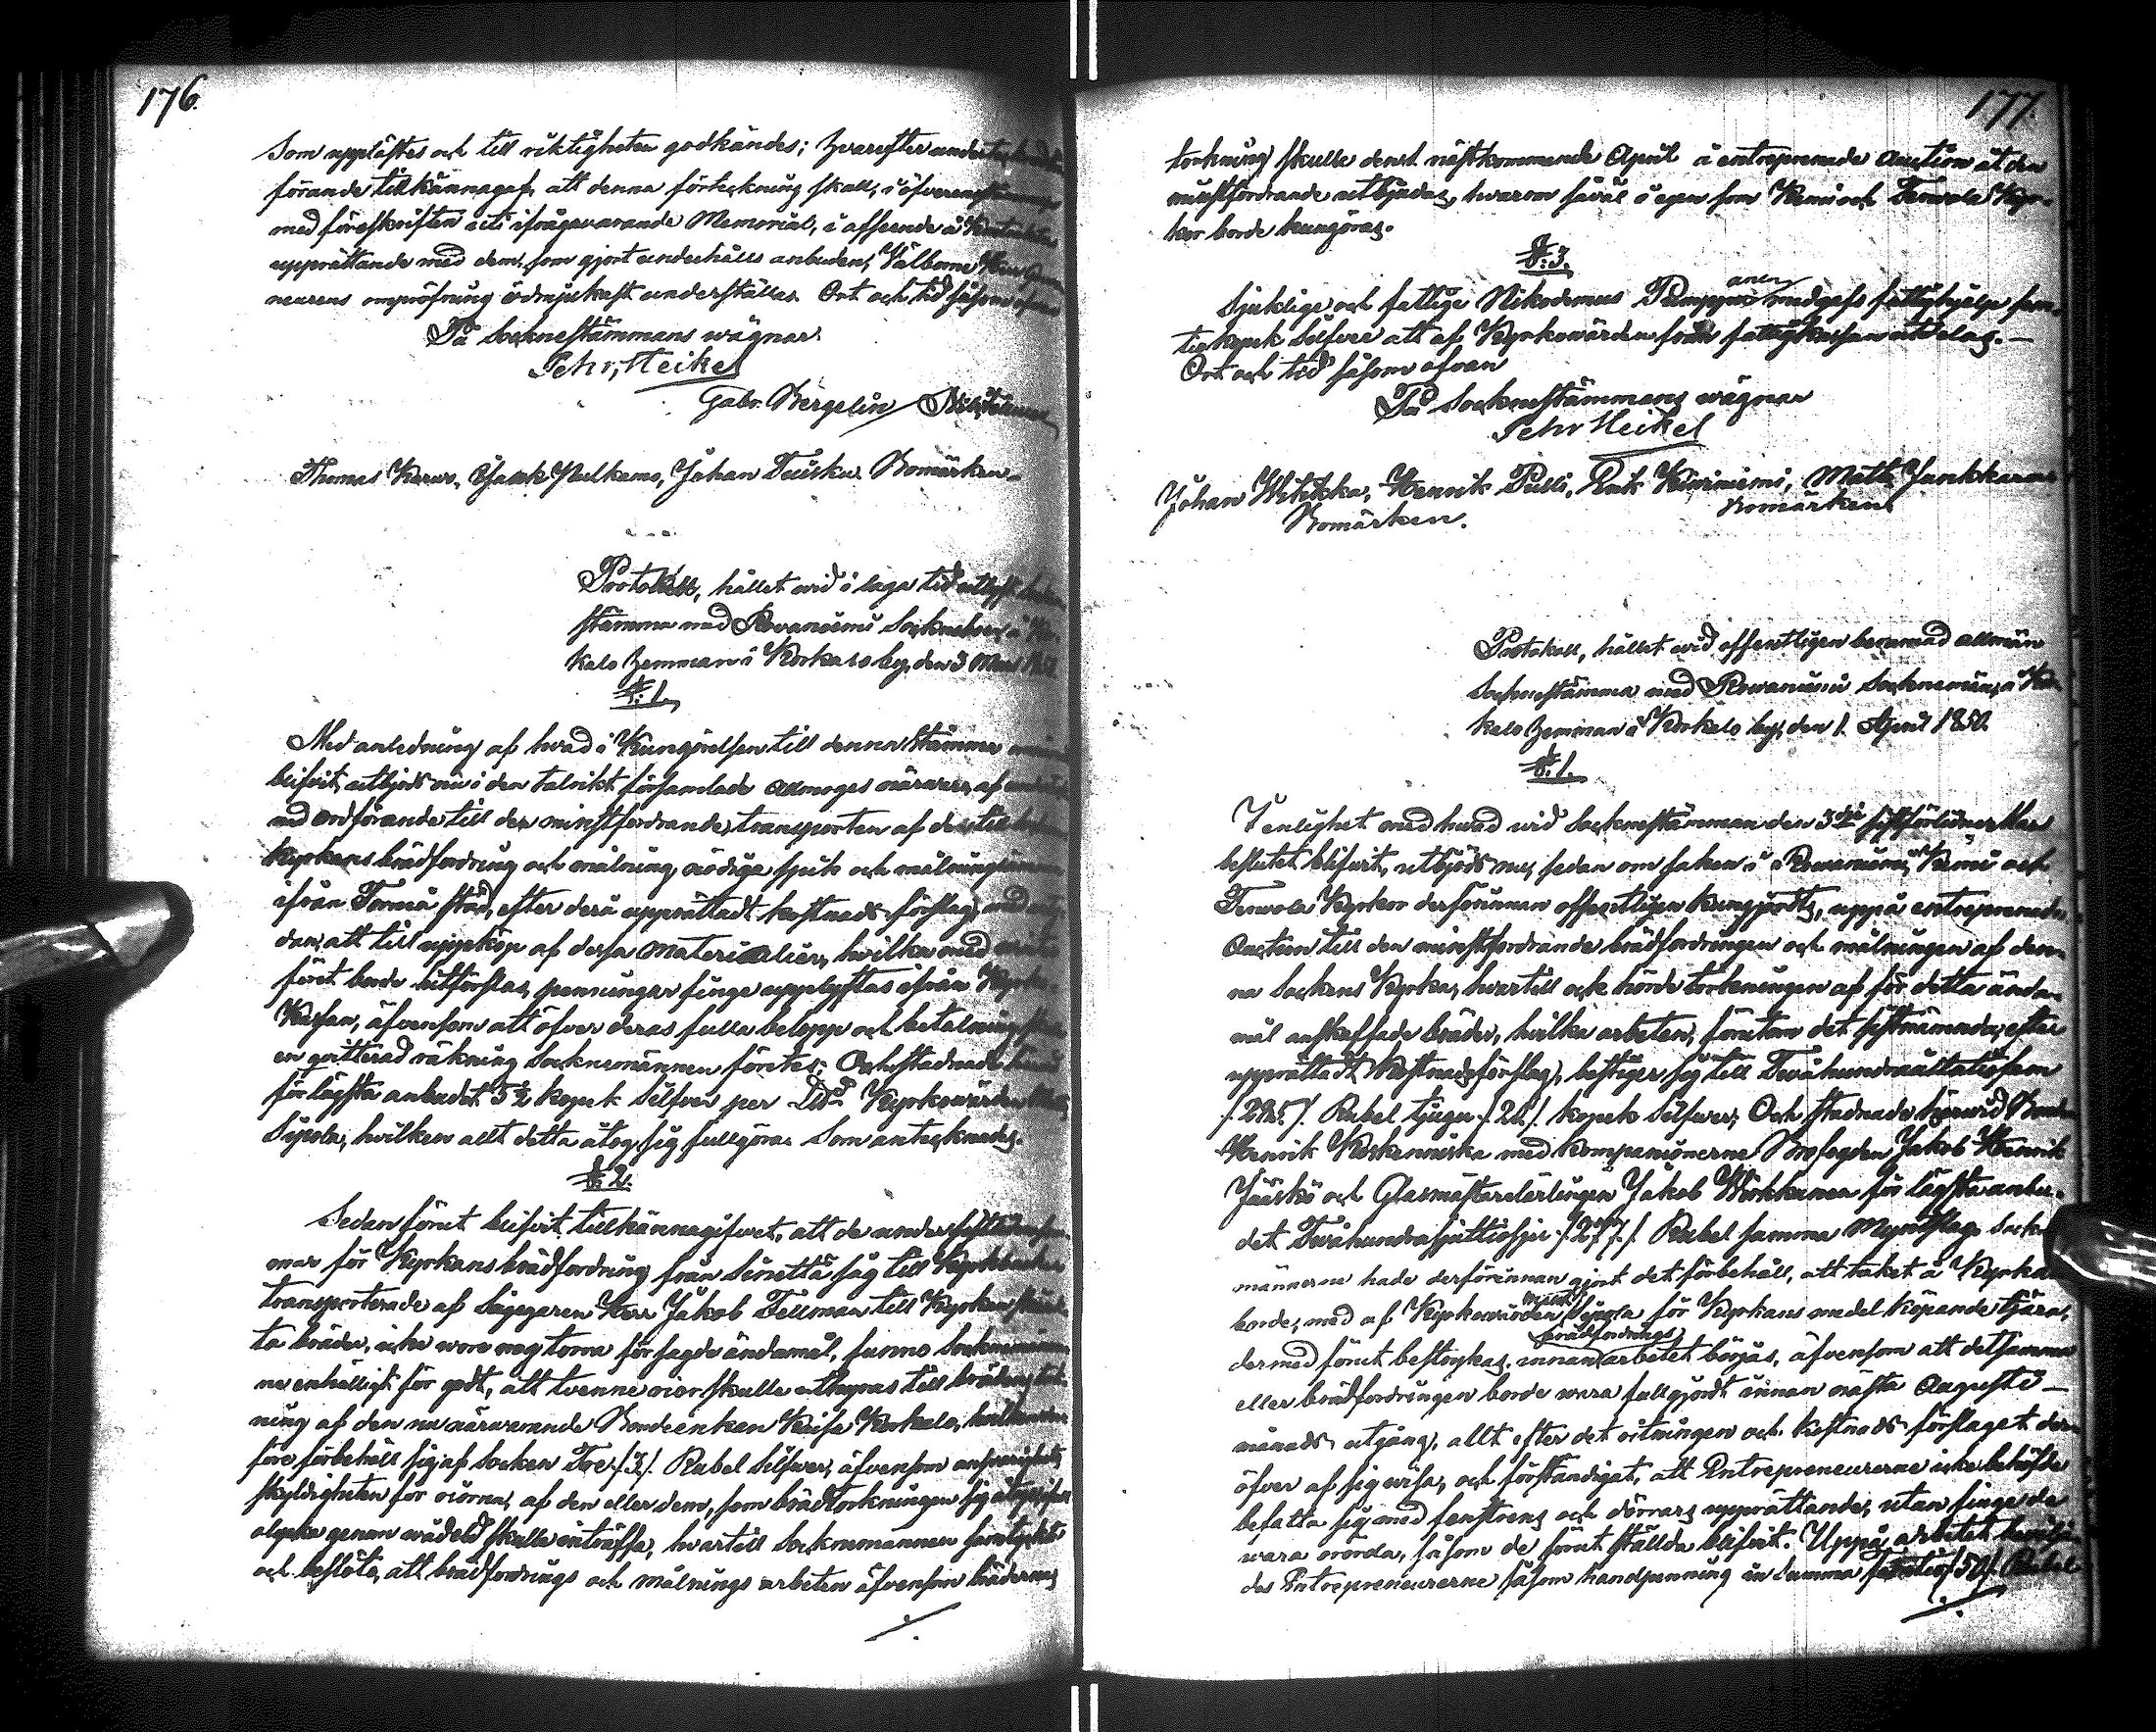 176.
Som upplästes och till riktigheten godkändes; hvarefter
förande tillkännagaf, att denna förteckning skall, i öfverensstämmelse
med föreskriften uti ifrågavarande Memorial, i afseende å
upprättande med dem, som gjort underhålls anbuden, Välborne Herr
neurens ompröfning ödmjukast underställas. Ort och tid såsom ofvan
På Socknestämmans wägnar.
Pehr Heikel
Gabr. Bergelin
Thomas Karvo, Johan Tuisku. Bomärken.
Protokoll, hållet wid i laga tid utlyst
stämma med Rovaniemi Socknebor, å
kalo hemman i Korkalo by, den 3 Mars
§. 1.
Med anledning af hvad i Kungörelsen till denna Stämma
blifvit, utbjöds nu i den talrikt församlade Allmoges närvaro, af
ordförande till den minstfordrande, transporten af de till
Kyrkans brädfordring och målning nödige spik och målningsämnen
ifrån Torneå stad, efter derå upprättadt kostnads förslag, med
dan, att till uppköp af dessa materialier, hvilka med
föret borde hitförslas, penningar finge upplyftas ifrån Kyrko-
Kassan, äfvensom att öfver deras fulla belopp och betalning
en qvitterad räkning Socknemännen företes; Och stadnade
för lägsta anbudet 5½ kopek Silfver per Kyrkowärden
Sipola, hvilken allt detta åtog sig fullgöra. Som antecknades.
§. 2.
Sedan förut blifvit tillkännagifvet, att de under
mar för Kyrkans brädfordring från Sinettä såg till Kyrkobacken
transporterade af Sågegaren Herr Jakob Fellman till Kyrkan
ta bräder, icke woro nog torra för sagde ändamål, funno Socknemännen
ne enhälligt för godt, att twenne rior skulle uthyras till brädens tork-
ning af den nu närvarande Bondeenkan Kaisa Korkalo, hvilken der-
före förbehöll sig af Socken Tre /3/. Rubel Silfwer, äfvensom answarighets
skyldigheten för riorna, af den eller dem, som brädtorkningen sig åtoge,
olycka genom wådeld skulle inträffa, hwartill Socknemännen samtyckte
och beslöto, att brädfordrings och målnings arbeten äfvensom brädernas
./.
177.
torkning skulle den 1 nästkommande April å entreprenade Auction åt den
minstfordrande utbjudas, hwarom såväl i egen som Kemi och Terwola Kyr-
kor borde kungöras.
§. 3.
Sjuklige och fattige Nikodemus Pumppanen medgafs fattighjelp fem-
tio kopek Silfver att af Kyrkowärden från fattigkassan utdelas. —
Ort och tid såsom ofvan
På Socknestämmans wägnar
Pehr Heikel
Johan Henrik Pulli, Erik Kiviniemi, Matts Junkkarne
Bomärken. Bomärken.
Protokoll, hållet wid offentligen berammad allmän
Socknestämma med Rowaniemi Socknemän, å Kor-
kalo hemman i Korkalo by, den 1. April 1850.
§. 1.
I enlighet med hwad wid Socknestämman den 3dje sistförlidne Mars
beslutet blifvit, utbjöds nu, sedan om saken i Rowaniemi, Kemi och
Terwola Kyrkor derförinnan offentligen kungjordts, uppå entreprenade
Auction till den minstfordrande brädfordringen och målningen af den-
na Sockens Kyrka, hvartill ock hörde torkningen af för detta ända-
mål anskaffade bräder, hvilka arbeten, förutom det sistnämnda, efter
upprättadt Kostnadsförslag, bestiger sig till Tvåhundraåttatiofem
/.285./. Rubel tjugu /.20./. kopek Silfwer; Och stadnade härwid Bonden
Henrik Koskenniska med kompanionerne Brofogden Jakob Henrik
Jääskö och Glasmästarelärlingen Jakob Wirkkunen för lägsta anbu-
det Twåhundrasjuttiosju /.277./. Rubel samma Myntslag. Socken
männerne hade derförinnan gjort det förbehåll, att taket å Kyrkan
borde, med af Kyrkowärden Sipola för Kyrkans medel köpande tjära,
dermed förut bestrykas, innan brädfordrings arbetet börjas, äfvensom att detsamma
eller brädfordringen borde wara fullgjordt innan nästa Augusti —
månads utgång, allt efter det ritningen och kostnads förslaget der-
öfver af sig wisa, och förständigat, att Entrepreneurerne icke behöfde
befatta sig med fenstrens och dörrars upprättande, utan finge de
wara orörda, såsom de förut ställda blifvit. Uppå arbetet
de Entrepreneurerne såsom handpenning en Summa femtio /50/. Rubel
./.